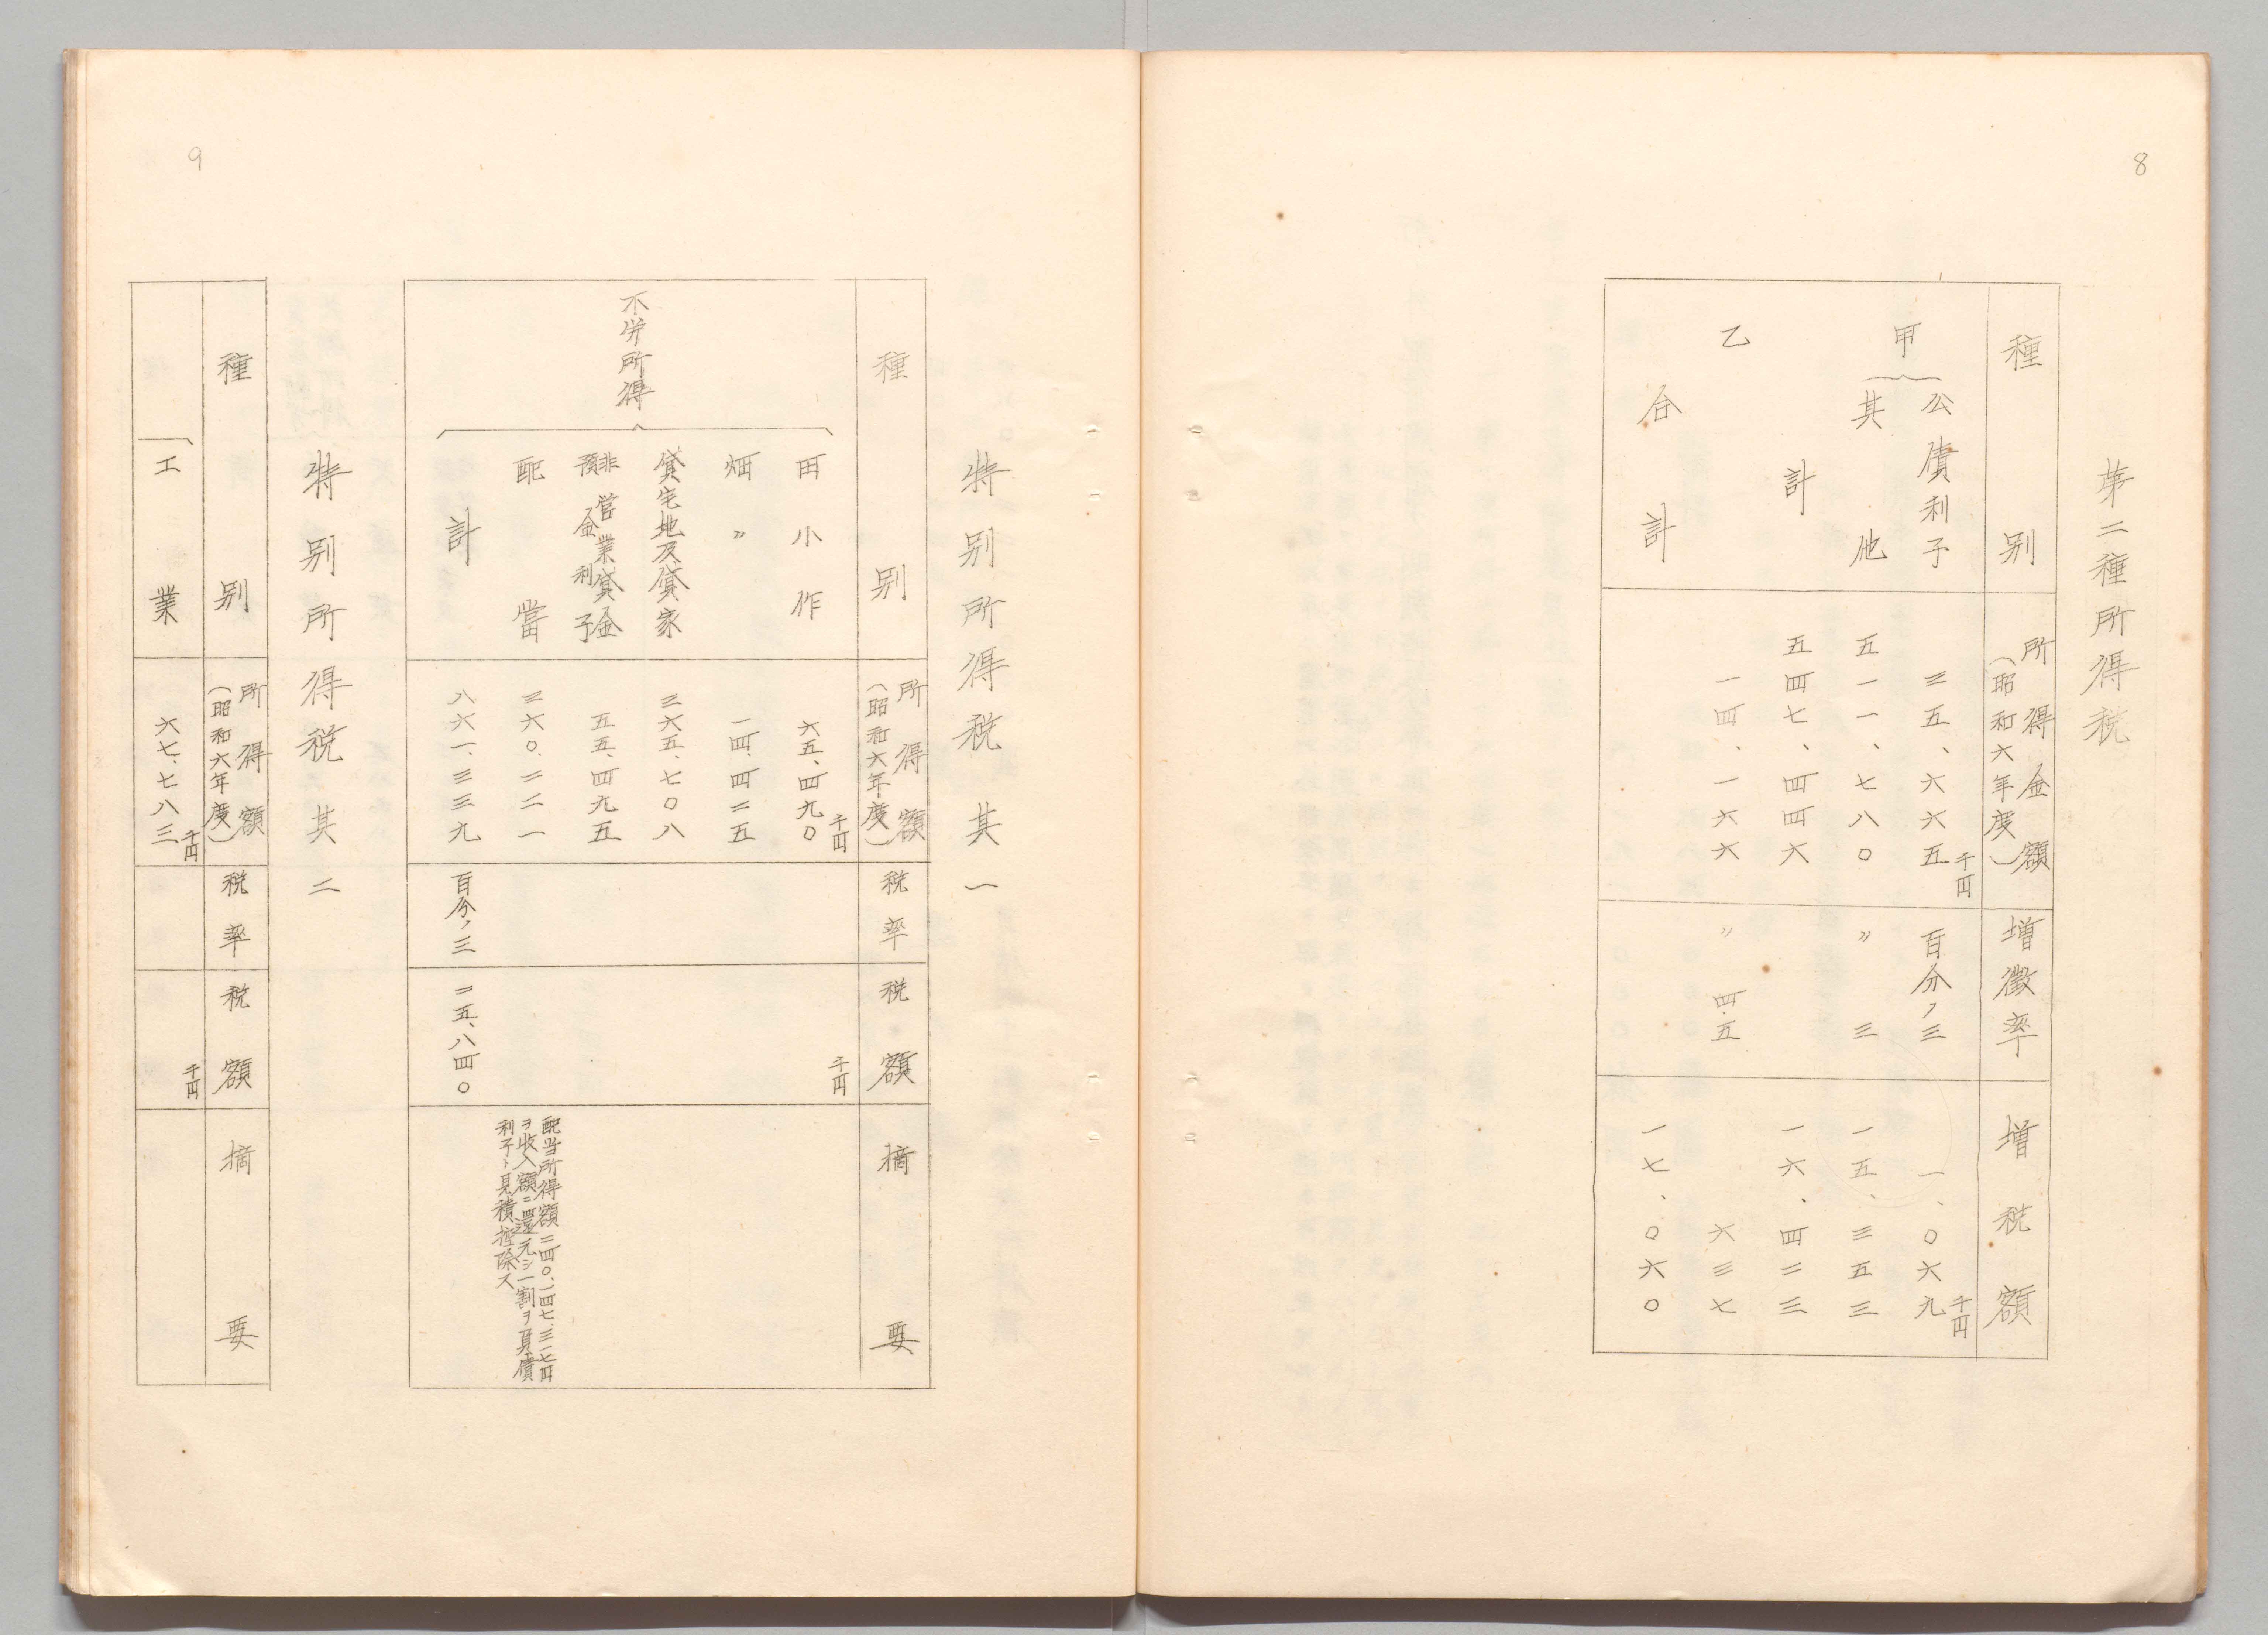 8
第二種所得税
種別
所得金額
(昭和六年度)
増徴率
増税額
甲
公債利子
三五、六六五
千円
百分ノ三
一、〇六九
千円
其他
五一一、七八〇
〃 三
一五、三五三
計
五四七、四四六
一六、四二三
乙
一四、一六六
〃 四.五
六三七
合計
一七、〇六〇
9
特別所得税 其一
種別
所得額
(昭和六年度)
税率
税額
摘要
不労所得
田小作
六五、四九〇
千円
千円
畑〃
一四、四二五
貸宅地及貸家
三六五、七〇八
非営業貸金
預金利子
五五、四九五
配當
三六〇、二二一
配当所得額二四〇、一四七、三一七円
ヲ收入額ニ還元シ一割ヲ負債
利子ト見積控除ス
計
八六一、三三九
百分ノ三
二五、八四〇
特別所得税 其二
種別
所得額
(昭和六年度)
税率
税額
摘要
工業
六七、七八三
千円
千円